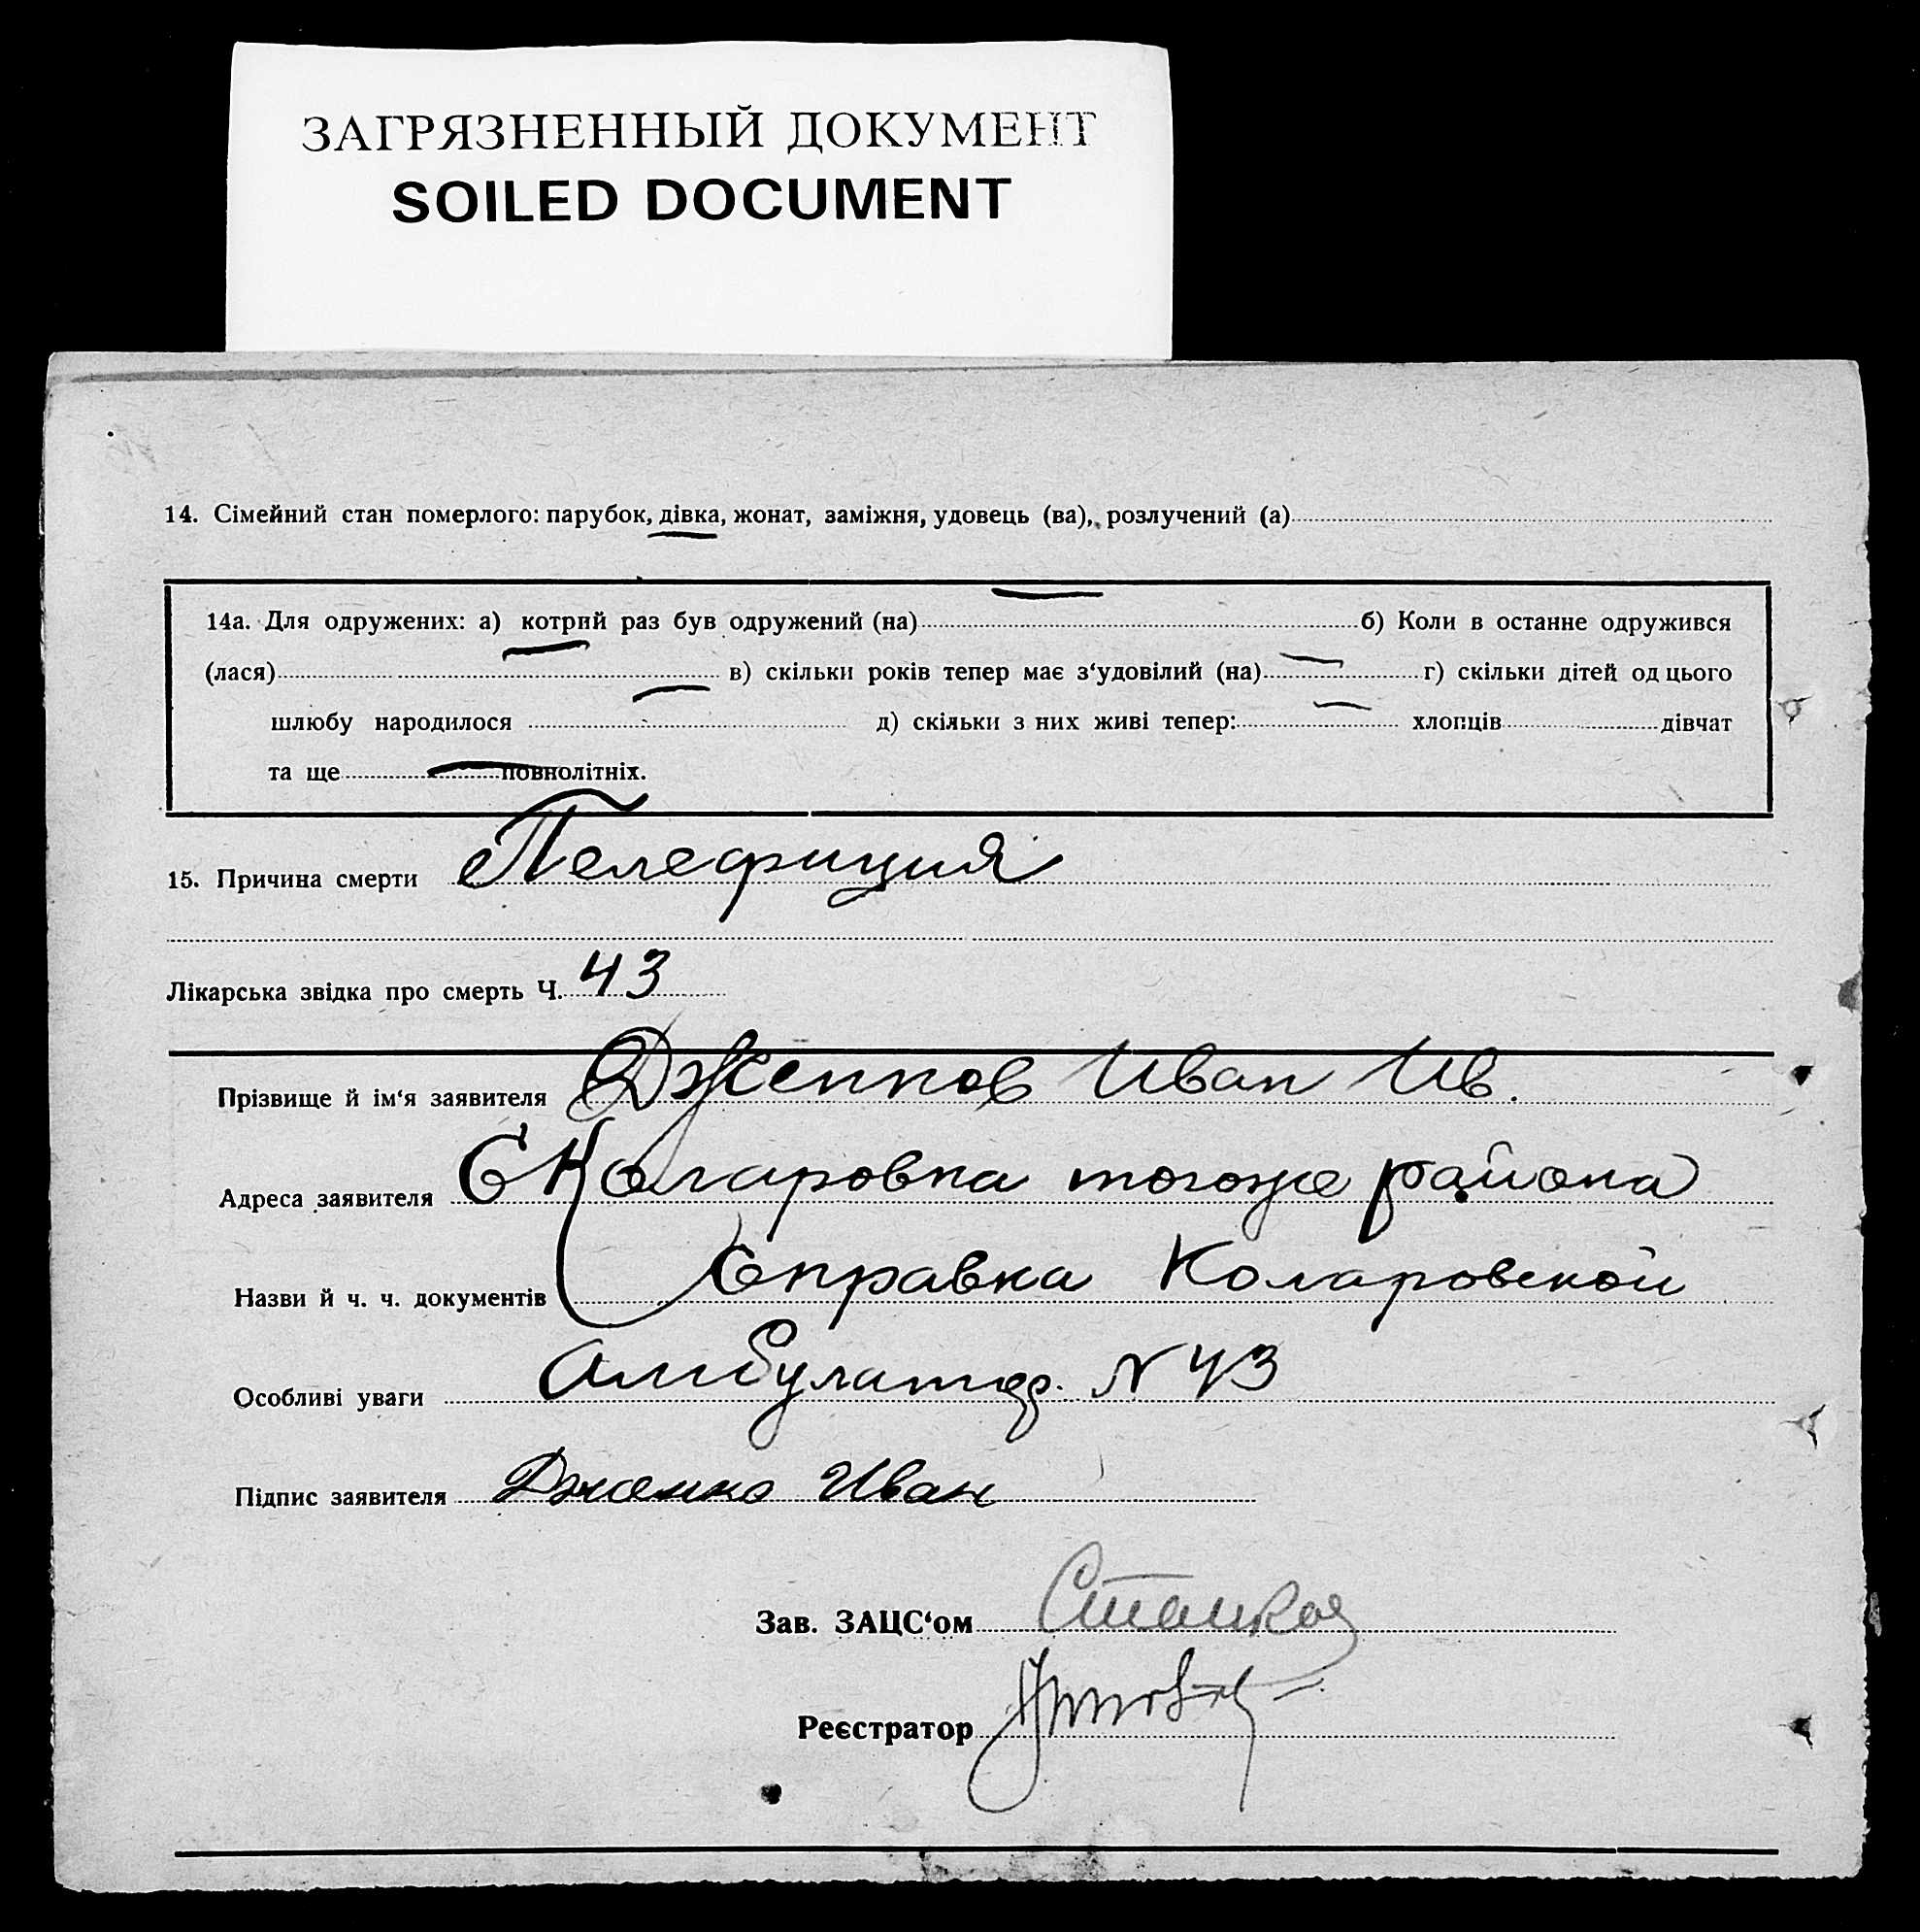 ЗАГРЯЗНЕННЫЙ ДОКУМЕНТ
SOILED DOCUMENT
14. Сімейний стан померлого: парубок, дівка, жонат, заміжня, удовець (ва), розлучений (а)
14а. Для одружених: а) котрий раз був одружений (на) б) Коли в останне одружився
(лася) в) скільки років тепер має з‘удовілий (на) г) скільки дітей од цього
шлюбу народилося д) скільки з них живі тепер: хлопців дівчат
та ще повнолітніх.
15. Причина смерти Пелефиция
Лікарська звідка про смерть Ч. 43
Прізвище й ім‘я заявителя Дженков Иван Ив.
Адреса заявителя С Коларовка тогоже района
Назви й ч. ч. документів Справка Коларовской
Особливі уваги Амбулатор. N 43
Підпис заявителя Дженко Иван
Зав. ЗАЦС‘ом
Реєстратор